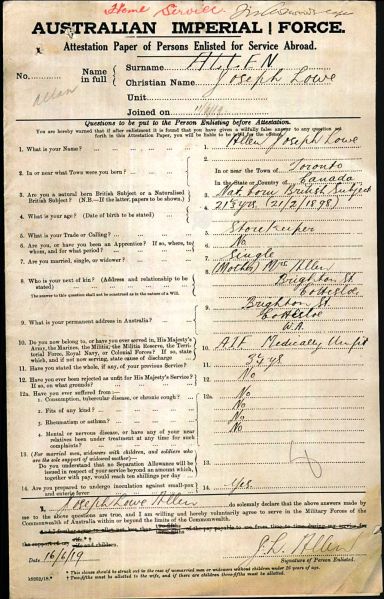 Home Service
AUSTRALIAN IMPERIAL FORCE.
Attestation Paper of Persons Enlisted for Service Abroad.
No. Allan
Name in full
Surname ALLEN
Christian Name Joseph Lowe
Unit
Joined on
Questions to be put to the Person Enlisting before Attestation.
You are hereby warned that if after enlistment it is found that you have given a wilfully false answer to any question set
forth in this Attestation Paper, you will be liable to
1. What is your Name? 1. Allen Joseph Lowe
2. In or near what Town were you born? 2. In or near the Town of Toronto
in the State or Country of Canada
3. Are you a natural born British Subject or a Naturalised 3. Nat born British Subject
British Subject? (N.B.—If the latter, papers to be shown.)
4. What is your age? (Date of birth to be stated) 4. 21 yrs (21/2/1898)
5. What is your Trade or Calling? 5. Storekeeper
6. Are you, or have you been an Apprentice? If so, where, 6. No
to whom, and for what period?
7. Are you married, single, or widower? 7. Single
8. Who is your next of kin? (Address and relationship to be 8. (Mother) Mrs Allen
stated) Brighton St
The answer to this question shall not be construed as in the nature of a Will. Cottesloe
9. What is your permanent address in Australia? 9. Brighton St
Cottesloe
W.A.
10. Do you now belong to, or have you ever served in, His Majesty's 10. AIF Medically Unfit
Army, the Marines, the Militia, the Militia Reserve, the Terri-
torial Force, Royal Navy, or Colonial Forces? If so, state
which, and if not now serving, state cause of discharge
11. Have you stated the whole, if any, of your previous Service? 11. yrs
12. Have you ever been rejected as unfit for His Majesty's Service? 12. No
If so, on what grounds?
12a. Have you ever suffered from— 12a.
1. Consumption, tubercular disease, or chronic cough? No
2. Fits of any kind? No
3. Rheumatism or asthma? No
4. Mental or nervous disease, or have any of your near No
relatives been under treatment at any time for such
complaints?
13. (For married men, widowers with children, and soldiers who 13.
are the sole support of widowed mother)—
Do you understand that no Separation Allowance will be
issued in respect of your service beyond an amount which,
together with pay, would reach ten shillings per day?
14. Are you prepared to undergo inoculation against small-pox 14. Yes.
and enteric fever
I, Joseph Lowe Allen do solemnly declare that the above answers made by
me to the above questions are true, and I am willing and hereby voluntarily agree to serve in the Military Forces of the
Commonwealth of Australia within or beyond the limits of the Commonwealth.
Date 16/6/19 J. L. Allen
Signature of Person Enlisted.
* This clause should be struck out in the case of unmarried men or widowers without children under 18 years of age.
† Two-fifths must be allotted to the wife, and if there are children three-fifths must be allotted.